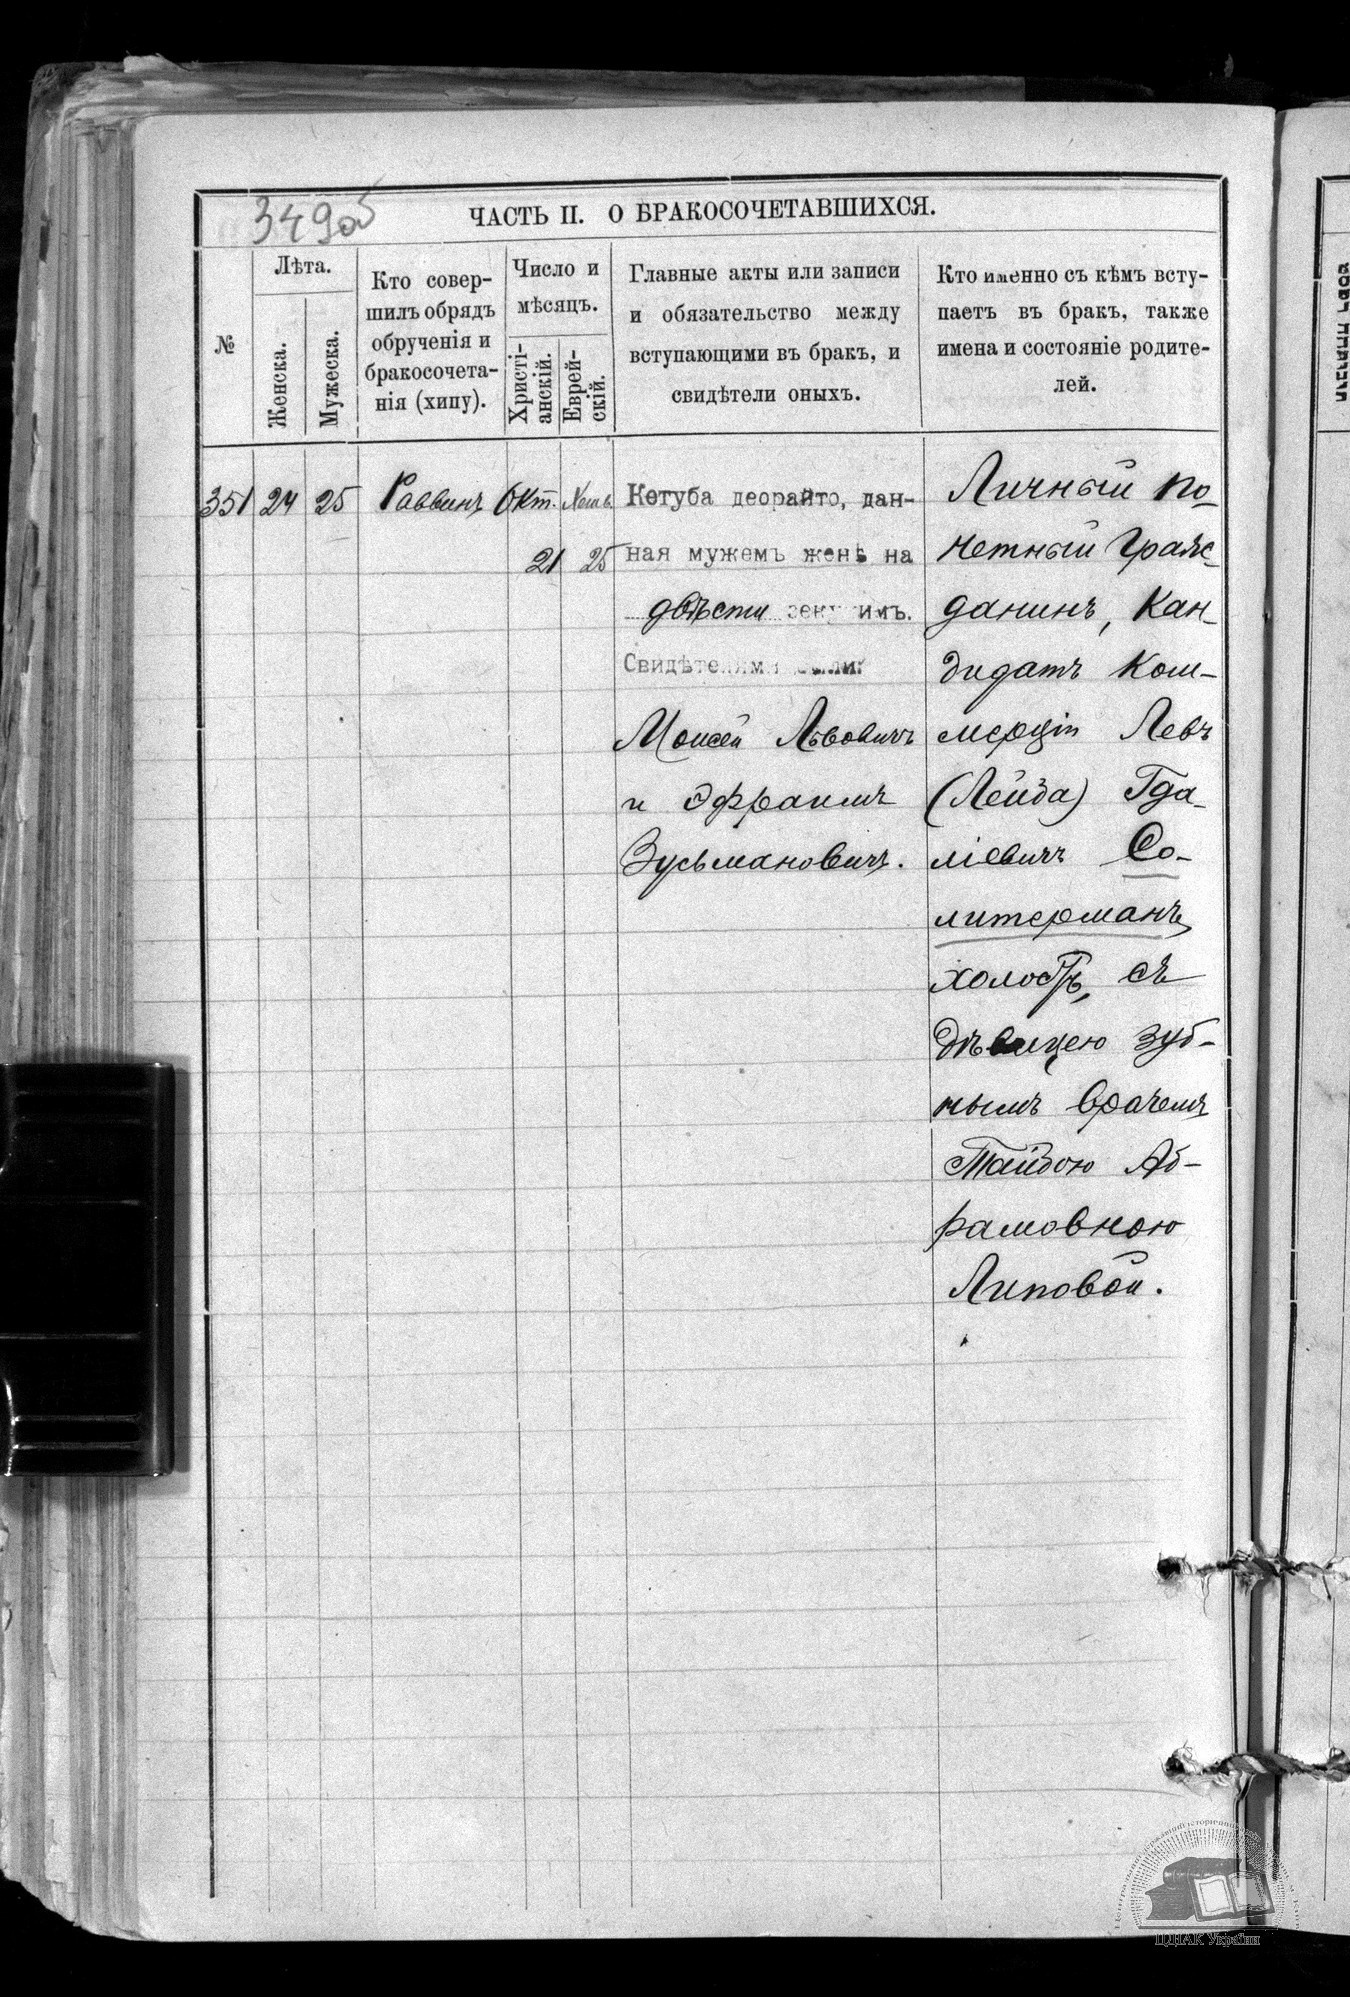 349об
ЧАСТЬ II. О БРАКОСОЧЕТАВШИХСЯ.
№
Лѣта.
Женска.
Мужеска.
Кто совер-
шилъ обрядъ
обрученія и
бракосочета-
нія (хипу).
Число и
мѣсяцъ.
Христі-
анскій.
Еврей-
скій.
Главные акты или записи
и обязательство между
вступающими въ бракъ, и
свидѣтели оныхъ.
Кто именно съ кѣмъ всту-
паетъ въ бракъ, также
имена и состояніе родите-
лей.
351 24 25 Раввинъ Окт. Хешв.
21 25
Кетуба деорайто, дан-
ная мужемъ женѣ на
двѣсти зекукимъ.
Свидѣтелями были:
Моисей Львовичъ
и Эфраимъ
Зусьмановичъ.
Личный по-
четный граж-
данинъ, кан-
дидатъ ком-
мерціи Левъ
(Лейба) Гда-
ліевичъ Со-
литерманъ,
холостъ, съ
дѣвицею зуб-
нымъ врачемъ
Тайбою Аб-
рамовною
Липовой.
ЦДІАК України